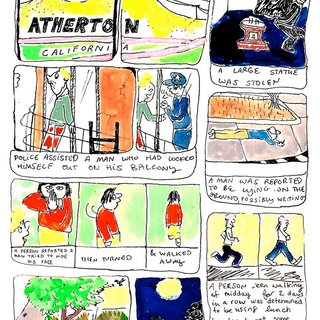 ATHERTON
CALIFORNIA
A LARGE STATUE
WAS STOLEN
POLICE ASSISTED A MAN WHO HAD LOCKED
HIMSELF OUT ON HIS BALCONY
A MAN WAS REPORTED
TO BE LYING ON THE
GROUND, POSSIBLY WRITING
A PERSON REPORTED A
MAN TRIED TO HIDE
HIS FACE
THEN TURNED
& WALKED
AWAY
A PERSON seen walking
at midday for 2 days
in a row was determined
to be using lunch